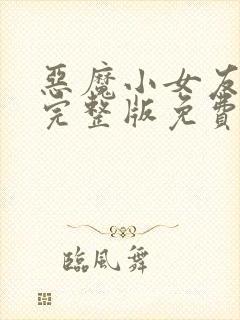 惡魔小女友
完整版免費
臨風舞